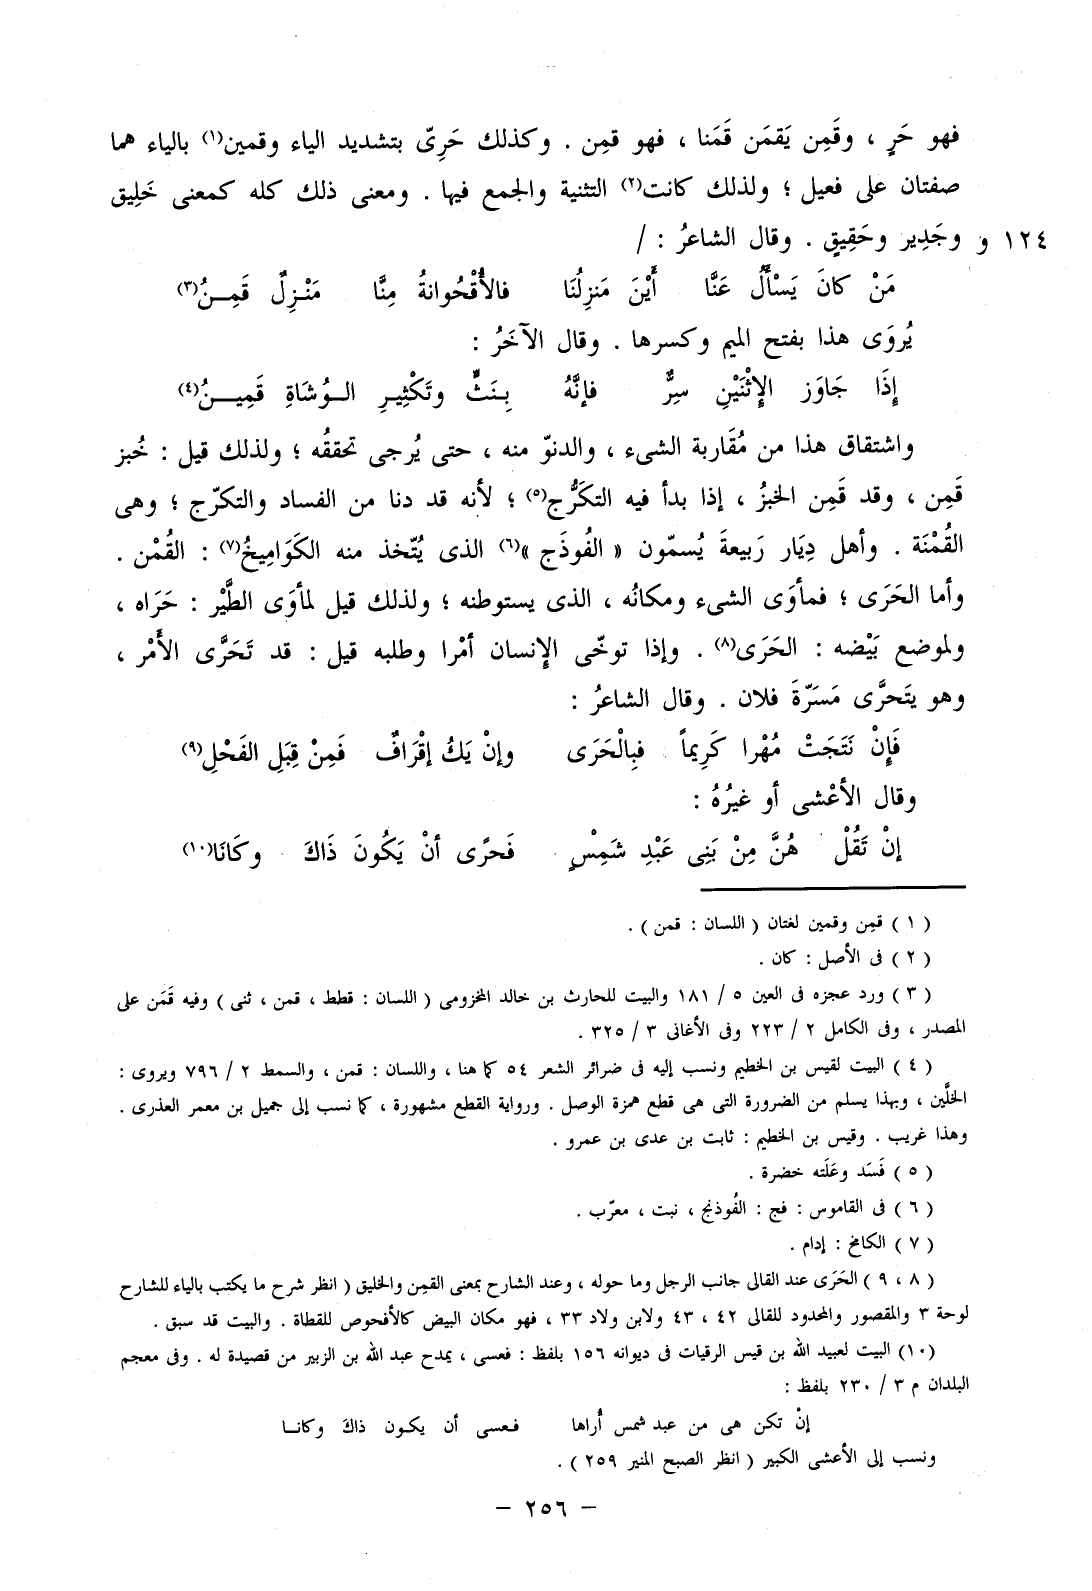 فهو حَرٍ ، وقَمِن يَقمَن قَمَنا ، فهو قمِن . وكذلك حَرِىّ بتشديد الياء وقمين(١) بالياء هما
صفتان على فعيل ؛ ولذلك كانت(٢) التثنية والجمع فيها . ومعنى ذلك كله كمعنى خَلِيق
١٢٤ و وجَدِير وحَقِيقٍ . وقال الشاعرُ : /
مَنْ كانَ يَسْأَلُ عَنَّا أَيْنَ مَنزِلُنَا فالأُقْحُوانةُ مِنَّا مَنْزِلٌ قَمِـنُ(٣)
يُروَى هذا بفتح الميم وكسرها . وقال الآخَرُ :
إِذَا جَاوَز الإِثْنَيْنِ سِرٌّ فإنَّهُ بِنَثٍّ وتَكْثِيرِ الـوُشَاةِ قَمِيـنُ(٤)
واشتقاق هذا من مُقَاربة الشىء ، والدنوّ منه ، حتى يُرجى تحققُه ؛ ولذلك قيل : خُبز
قَمِن ، وقد قَمِن الخبزُ ، إذا بدأ فيه التكَرُّج(٥) ؛ لأنه قد دنا من الفساد والتكرّج ؛ وهى
القُمْنَة . وأهل دِيَار رَبيعةَ يُسمّون « الفُوذَج »(٦) الذى يُتّخذ منه الكَوَامِيخُ(٧) : القُمْن .
وأما الحَرَى ؛ فمأوَى الشىء ومكانُه ، الذى يستوطنه ؛ ولذلك قيل لمأوَى الطَّيْر : حَرَاه ،
ولموضع بَيْضه : الحَرَى(٨) . وإذا توخّى الإنسان أمْرا وطلبه قيل : قد تَحَرَّى الأَمْر ،
وهو يتَحرَّى مَسَرَّةَ فلان . وقال الشاعرُ :
فَإِنْ نَتَجَتْ مُهْرا كَرِيماً فبِالْحَرَى وإنْ يَكُ إقْرَافٌ فَمِنْ قِبَلِ الفَحْلِ(٩)
وقال الأعْشى أو غيرُهُ :
إنْ تَقُلْ هُنَّ مِنْ بَنِى عَبْدِ شَمِسٍ فَحرًى أنْ يَكُونَ ذَاكَ وكَانَا(١٠)
( ١ ) قمِن وقمين لغتان ( اللسان : قمن ) .
( ٢ ) فى الأصل : كان .
( ٣ ) ورد عجزه فى العين ٥ / ١٨١ والبيت للحارث بن خالد المخزومى ( اللسان : قطط ، قمن ، ثنى ) وفيه قَمَن على
المصدر ، وفى الكامل ٢ / ٢٢٣ وفى الأغانى ٣ / ٣٢٥ .
( ٤ ) البيت لقيس بن الخطيم ونسب إليه فى ضرائر الشعر ٥٤ كما هنا ، واللسان : قمن ، والسمط ٢ / ٧٩٦ ويروى :
الخلَّين ، وبهذا يسلم من الضرورة التى هى قطع همزة الوصل . ورواية القطع مشهورة ، كما نسب إلى جميل بن معمر العذرى .
وهذا غريب . وقيس بن الخطيم : ثابت بن عدى بن عمرو .
( ٥ ) فَسَد وعَلَته خضرة .
( ٦ ) فى القاموس : فج : الفُوذنج ، نبت ، معرّب .
( ٧ ) الكامخ : إدام .
( ٨ ، ٩ ) الحَرَى عند القالى جانب الرجل وما حوله ، وعند الشارح بمعنى القمِن والخليق ( انظر شرح ما يكتب بالياء للشارح
لوحة ٣ والمقصور والمحدود للقالى ٤٢ ، ٤٣ ولابن ولاد ٣٣ ، فهو مكان البيض كالأفحوص للقطاة . والبيت قد سبق .
(١٠) البيت لعبيد الله بن قيس الرقيات فى ديوانه ١٥٦ بلفظ : فعسى ، يمدح عبد الله بن الزبير من قصيدة له . وفى معجم
البلدان م ٣ / ٢٣٠ بلفظ :
إنْ تكن هى من عبد شمس أُراها فـعسى أن يكـون ذاكَ وكانـا
ونسب إلى الأعشى الكبير ( انظر الصبح المنير ٢٥٩ ) .
– ٢٥٦ –